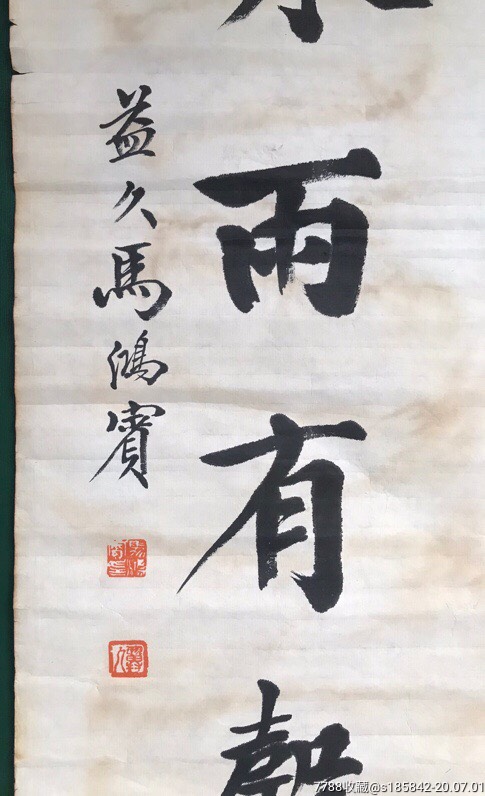 雨有聲
益久馬鴻賓
7788收藏@s185842-20.07.01